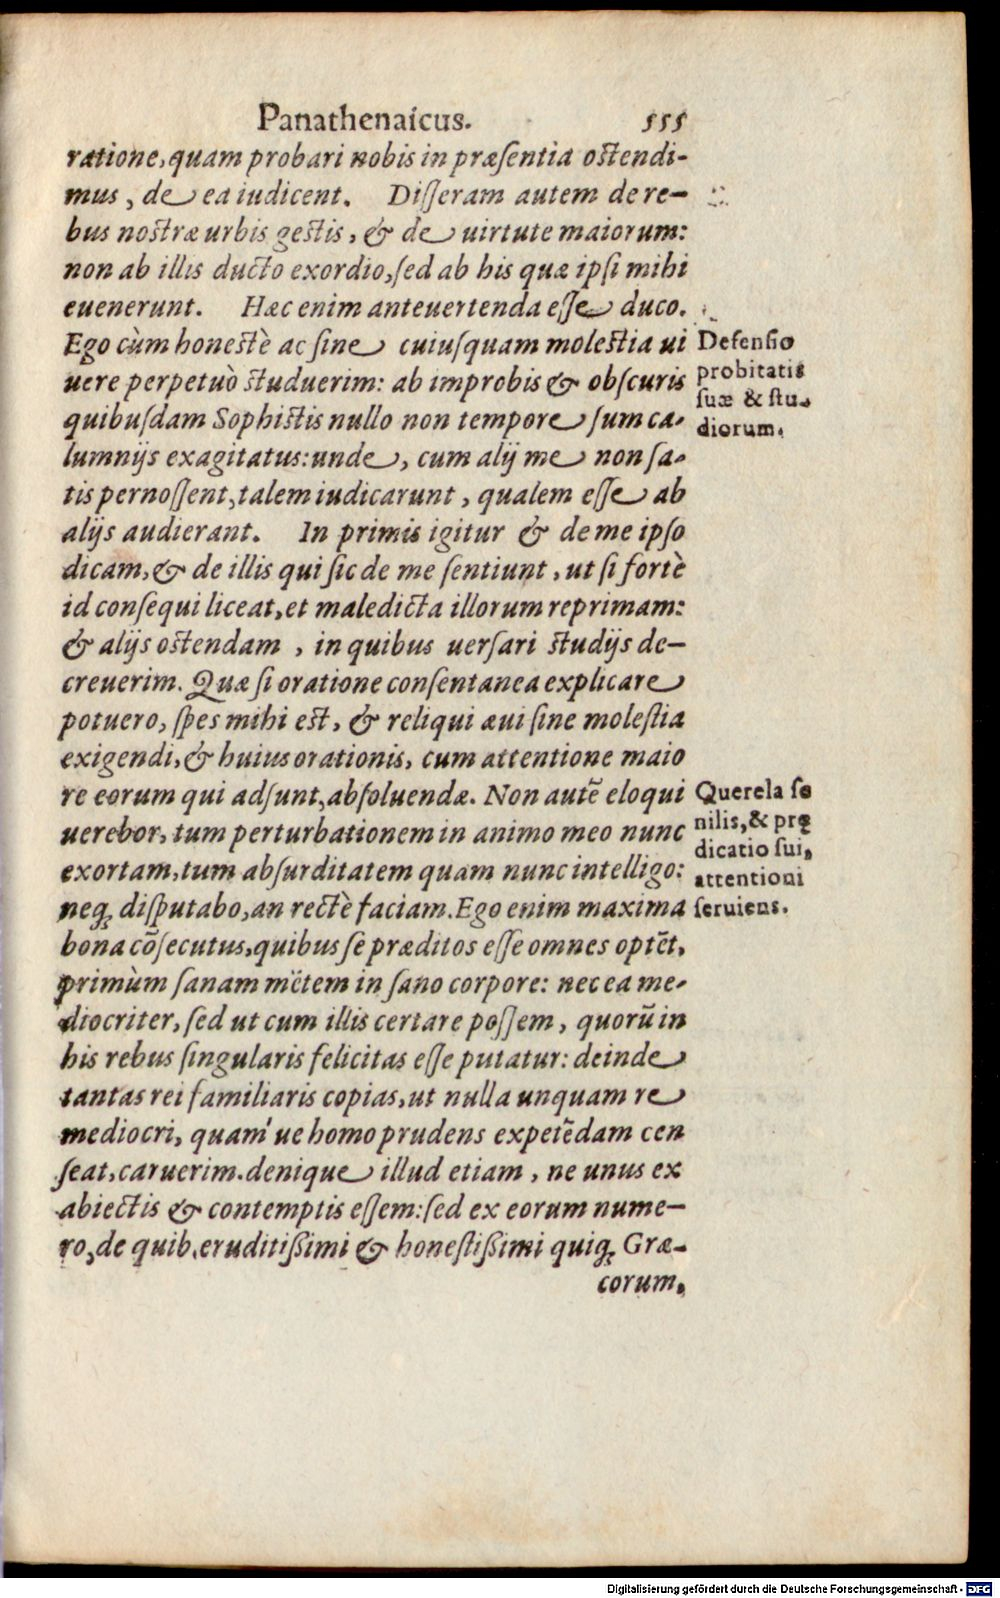 Panathenaicus. 555
ratione, quam probari nobis in præſentia oſtendi-
mus, de ea iudicent. Diſſeram autem de re-
bus noſtræ urbis geſtis, & de uirtute maiorum:
non ab illis ducto exordio, ſed ab his quæ ipſi mihi
euenerunt. Hæc enim anteuertenda eſſe duco.
Ego cùm honeſtè ac ſine cuiuſquam moleſtia ui
uere perpetuò ſtuduerim: ab improbis & obſcuris
quibuſdam Sophiſtis nullo non tempore ſum ca-
lumnijs exagitatus: unde, cum alij me non ſa-
tis pernoſſent, talem iudicarunt, qualem eſſe ab
alijs audierant. In primis igitur & de me ipſo
dicam, & de illis qui ſic de me ſentiunt, ut ſi fortè
id conſequi liceat, et maledicta illorum reprimam:
& alijs oſtendam, in quibus uerſari ſtudijs de-
creuerim. Quæ ſi oratione conſentanea explicare
potuero, ſpes mihi eſt, & reliqui æui ſine moleſtia
exigendi, & huius orationis, cum attentione maio
re eorum qui adſunt, abſoluendæ. Non autē eloqui
uerebor, tum perturbationem in animo meo nunc
exortam, tum abſurditatem quam nunc intelligo:
neq; diſputabo, an rectè faciam. Ego enim maxima
bona cōſecutus, quibus ſe præditos eſſe omnes optēt,
primùm ſanam mētem in ſano corpore: nec ea me-
diocriter, ſed ut cum illis certare poſſem, quorū in
his rebus ſingularis felicitas eſſe putatur: deinde
tantas rei familiaris copias, ut nulla unquam re
mediocri, quam'ue homo prudens expetēdam cen
ſeat, caruerim. denique illud etiam, ne unus ex
abiectis & contemptis eſſem: ſed ex eorum nume-
ro, de quib. eruditißimi & honeſtißimi quiq; Græ-
corum,
Defenſio
probitatis
ſuæ & ſtu-
diorum.
Querela ſe
nilis, & prę
dicatio ſui,
attentioni
ſeruiens.
Digitalisierung gefördert durch die Deutsche Forschungsgemeinschaft - DFG